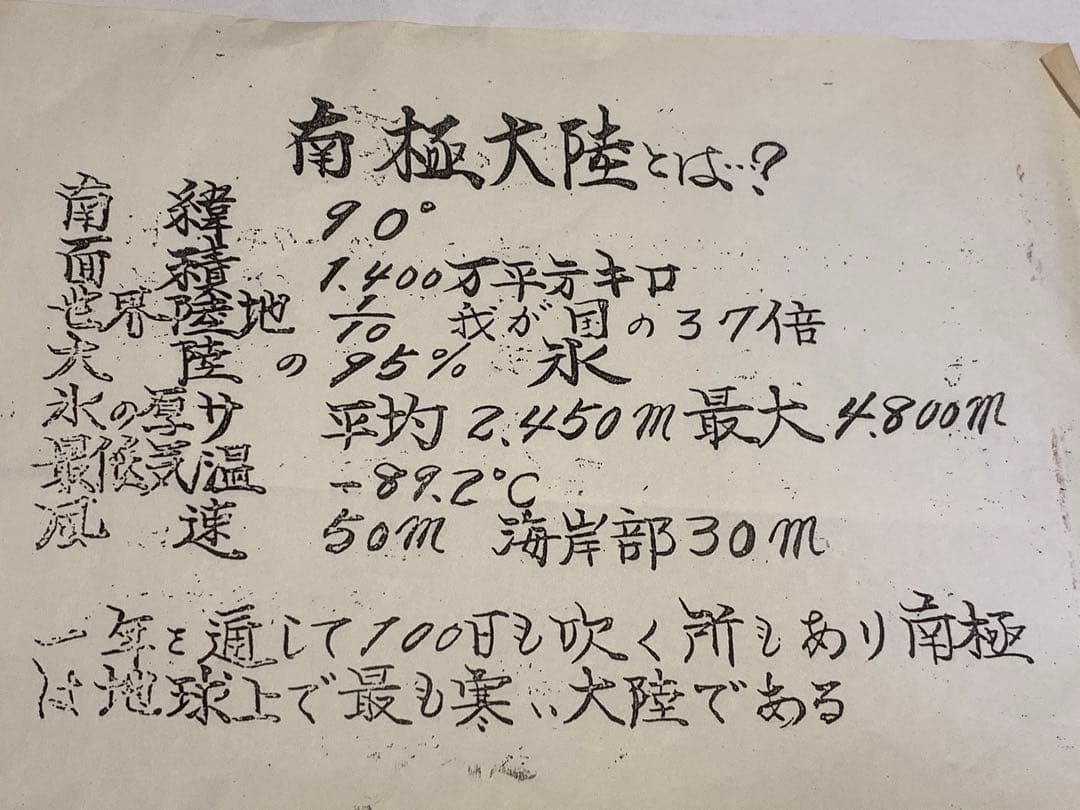 南極大陸とは…?
南緯 90°
面積 1.400万平方キロ
世界陸地 1/10 我が国の37倍
大陸の95% 氷
氷の厚サ 平均2.450m最大4.800m
最低気温 -89.2°C
風速 50m 海岸部30m
一年を通して100日も吹く所もあり南極
は地球上で最も寒い大陸である